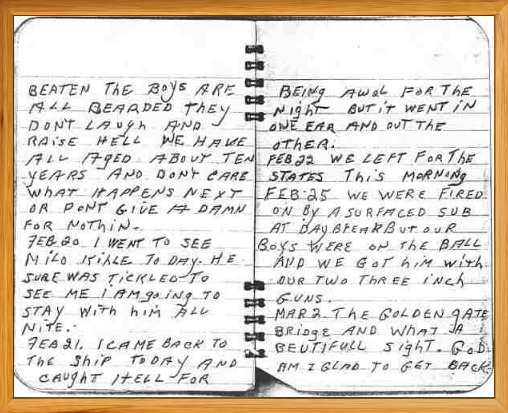 BEATEN THE BOYS ARE
ALL BEARDED THEY
DON'T LAUGH AND
RAISE HELL WE HAVE
ALL AGED ABOUT TEN
YEARS AND DON'T CARE
WHAT HAPPENS NEXT
OR DON'T GIVE A DAMN
FOR NOTHIN.
FEB.20. I WENT TO SEE
MILO KIHLE TO DAY. HE
SURE WAS TICKLED TO
SEE ME I AM going TO
STAY WITH HIM ALL
NITE.
FEB.21. I CAME BACK TO
THE SHIP TODAY AND
CAUGHT HELL FOR
BEING AWOL FOR THE
NIGHT BUT IT WENT IN
ONE EAR AND OUT THE
OTHER.
FEB 22 WE LEFT FOR THE
STATES THIS MORNING
FEB 25 WE WERE FIRED
ON BY A SURFACED SUB
AT DAYBREAK BUT OUR
BOYS WERE ON THE BALL
AND WE GOT HIM WITH
OUR TWO THREE INCH
GUNS.
MAR 2. THE GOLDEN GATE
BRIDGE AND WHAT A
BEUTIFULL SIGHT. GOD
AM I GLAD TO GET BACK